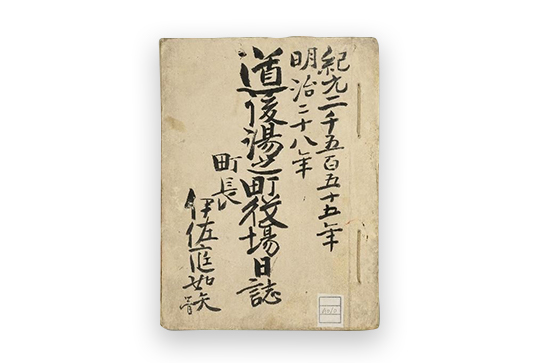 紀元二千五百五十五年
明治二十八年
道後湯之町役場日誌
町長
伊佐庭如矢